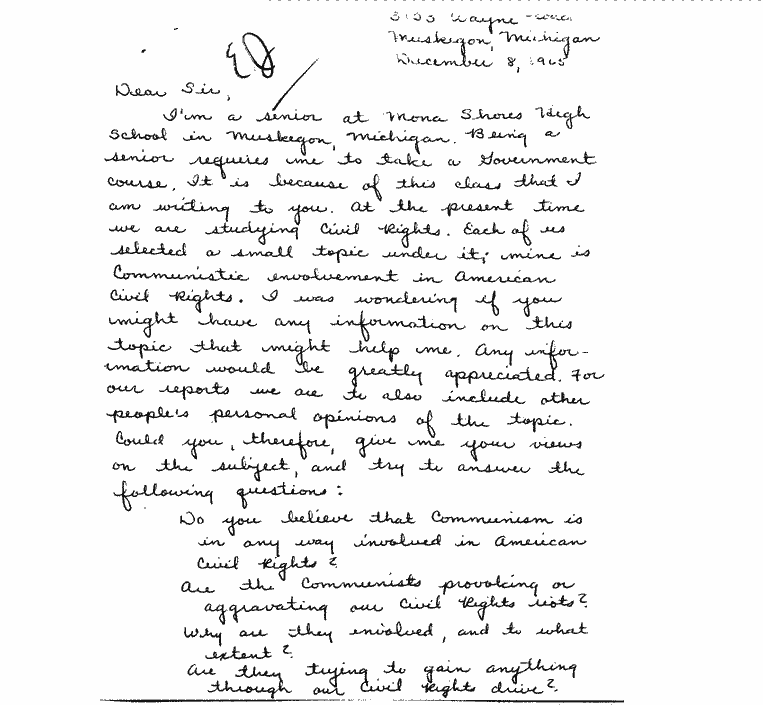 Wayne
Muskegon, Michigan
December 8, 1965
Dear Sir,
I'm a senior at Mona Shores High
School in Muskegon, Michigan. Being a
senior requires me to take a Government
course. It is because of this class that I
am writing to you. At the present time
we are studying Civil Rights. Each of us
selected a small topic under it; mine is
Communistic involvement in American
Civil Rights. I was wondering if you
might have any information on this
topic that might help me. Any infor-
mation would be greatly appreciated. For
our reports we are to also include other
people's personal opinions of the topic.
Could you, therefore, give me your views
on the subject, and try to answer the
following questions:
Do you believe that Communism is
in any way involved in American
Civil Rights?
Are the Communists provoking or
aggravating our Civil Rights riots?
Why are they involved, and to what
extent?
Are they trying to gain anything
through our Civil Rights drive?